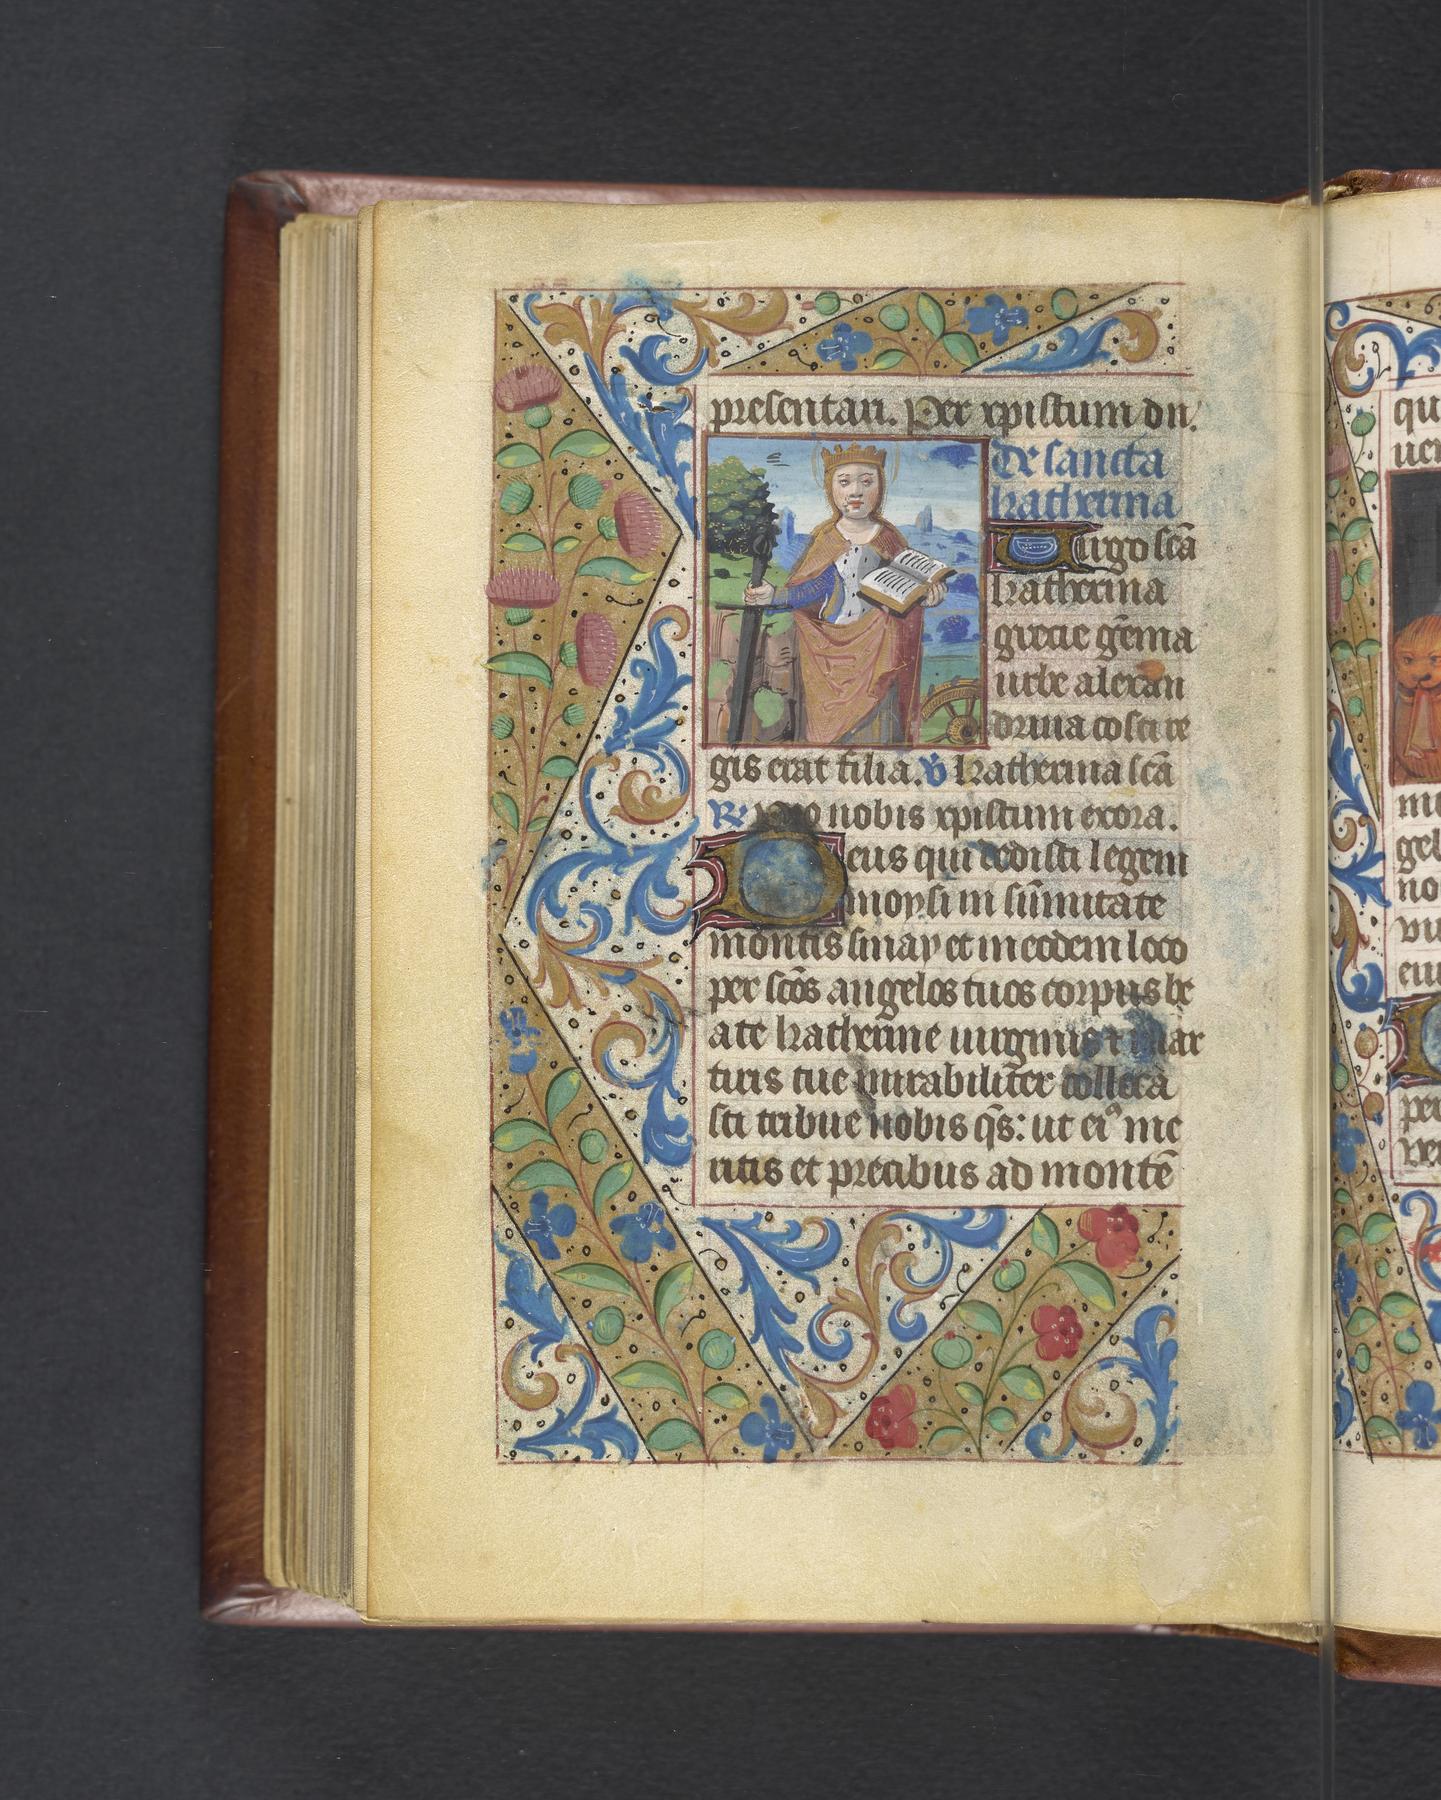 presentari. Per xpistum dn̄.
De sancta
katherina
Virgo scā
katherina
grecie gēma
urbe alexan
drina costi re
gis erat filia. ℣ katherina scā
℟ pro nobis xpistum exora.
Deus qui dedisti legem
moysi in sūmitate
montis sinay et in eodem loco
per scōs angelos tuos corpus be
ate katherine uirginis ⁊ mar
tiris tue mirabiliter colloca
sti tribue nobis q̄s: ut eiꝰ me
ritis et precibus ad montē
qu
uer
mu
gel
no
eiu
per
ver